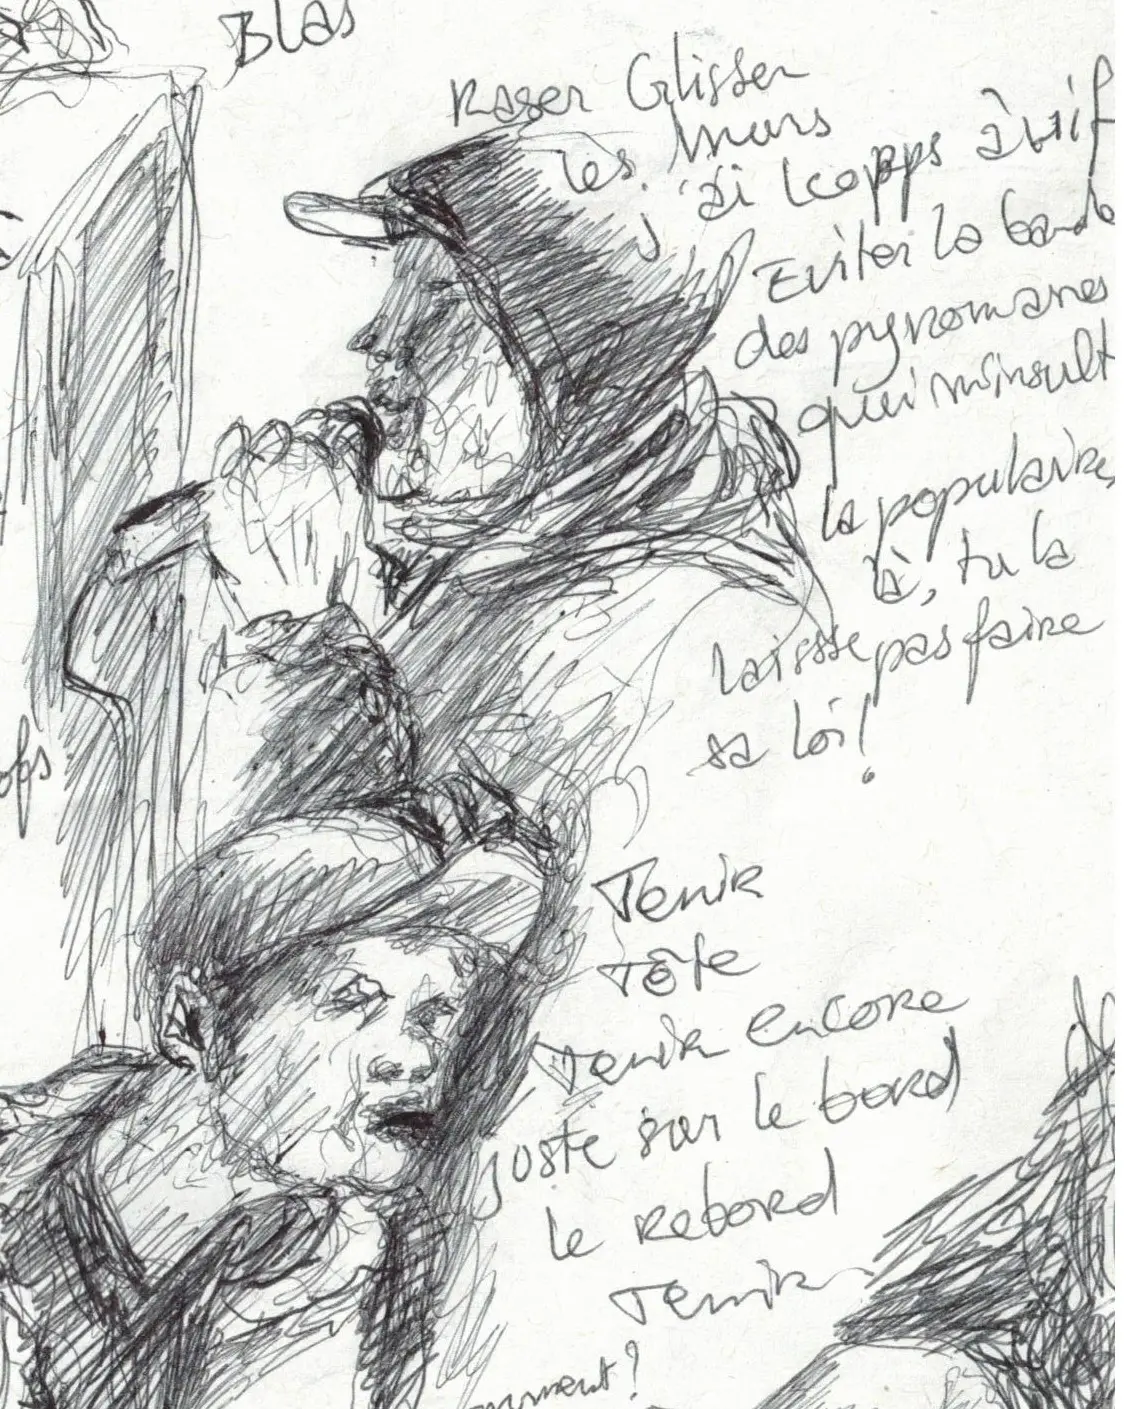 Blas
Raser Glisser
les murs
j'ai lcopps à vif
Eviter la band
des pyromanes
qui m'insult
la populaire,
là, tu la
laissse pas faire
sa loi!
ops
Tenir
Tête
Tenir encore
juste sur le bord
le rebord
Tenir
mment?